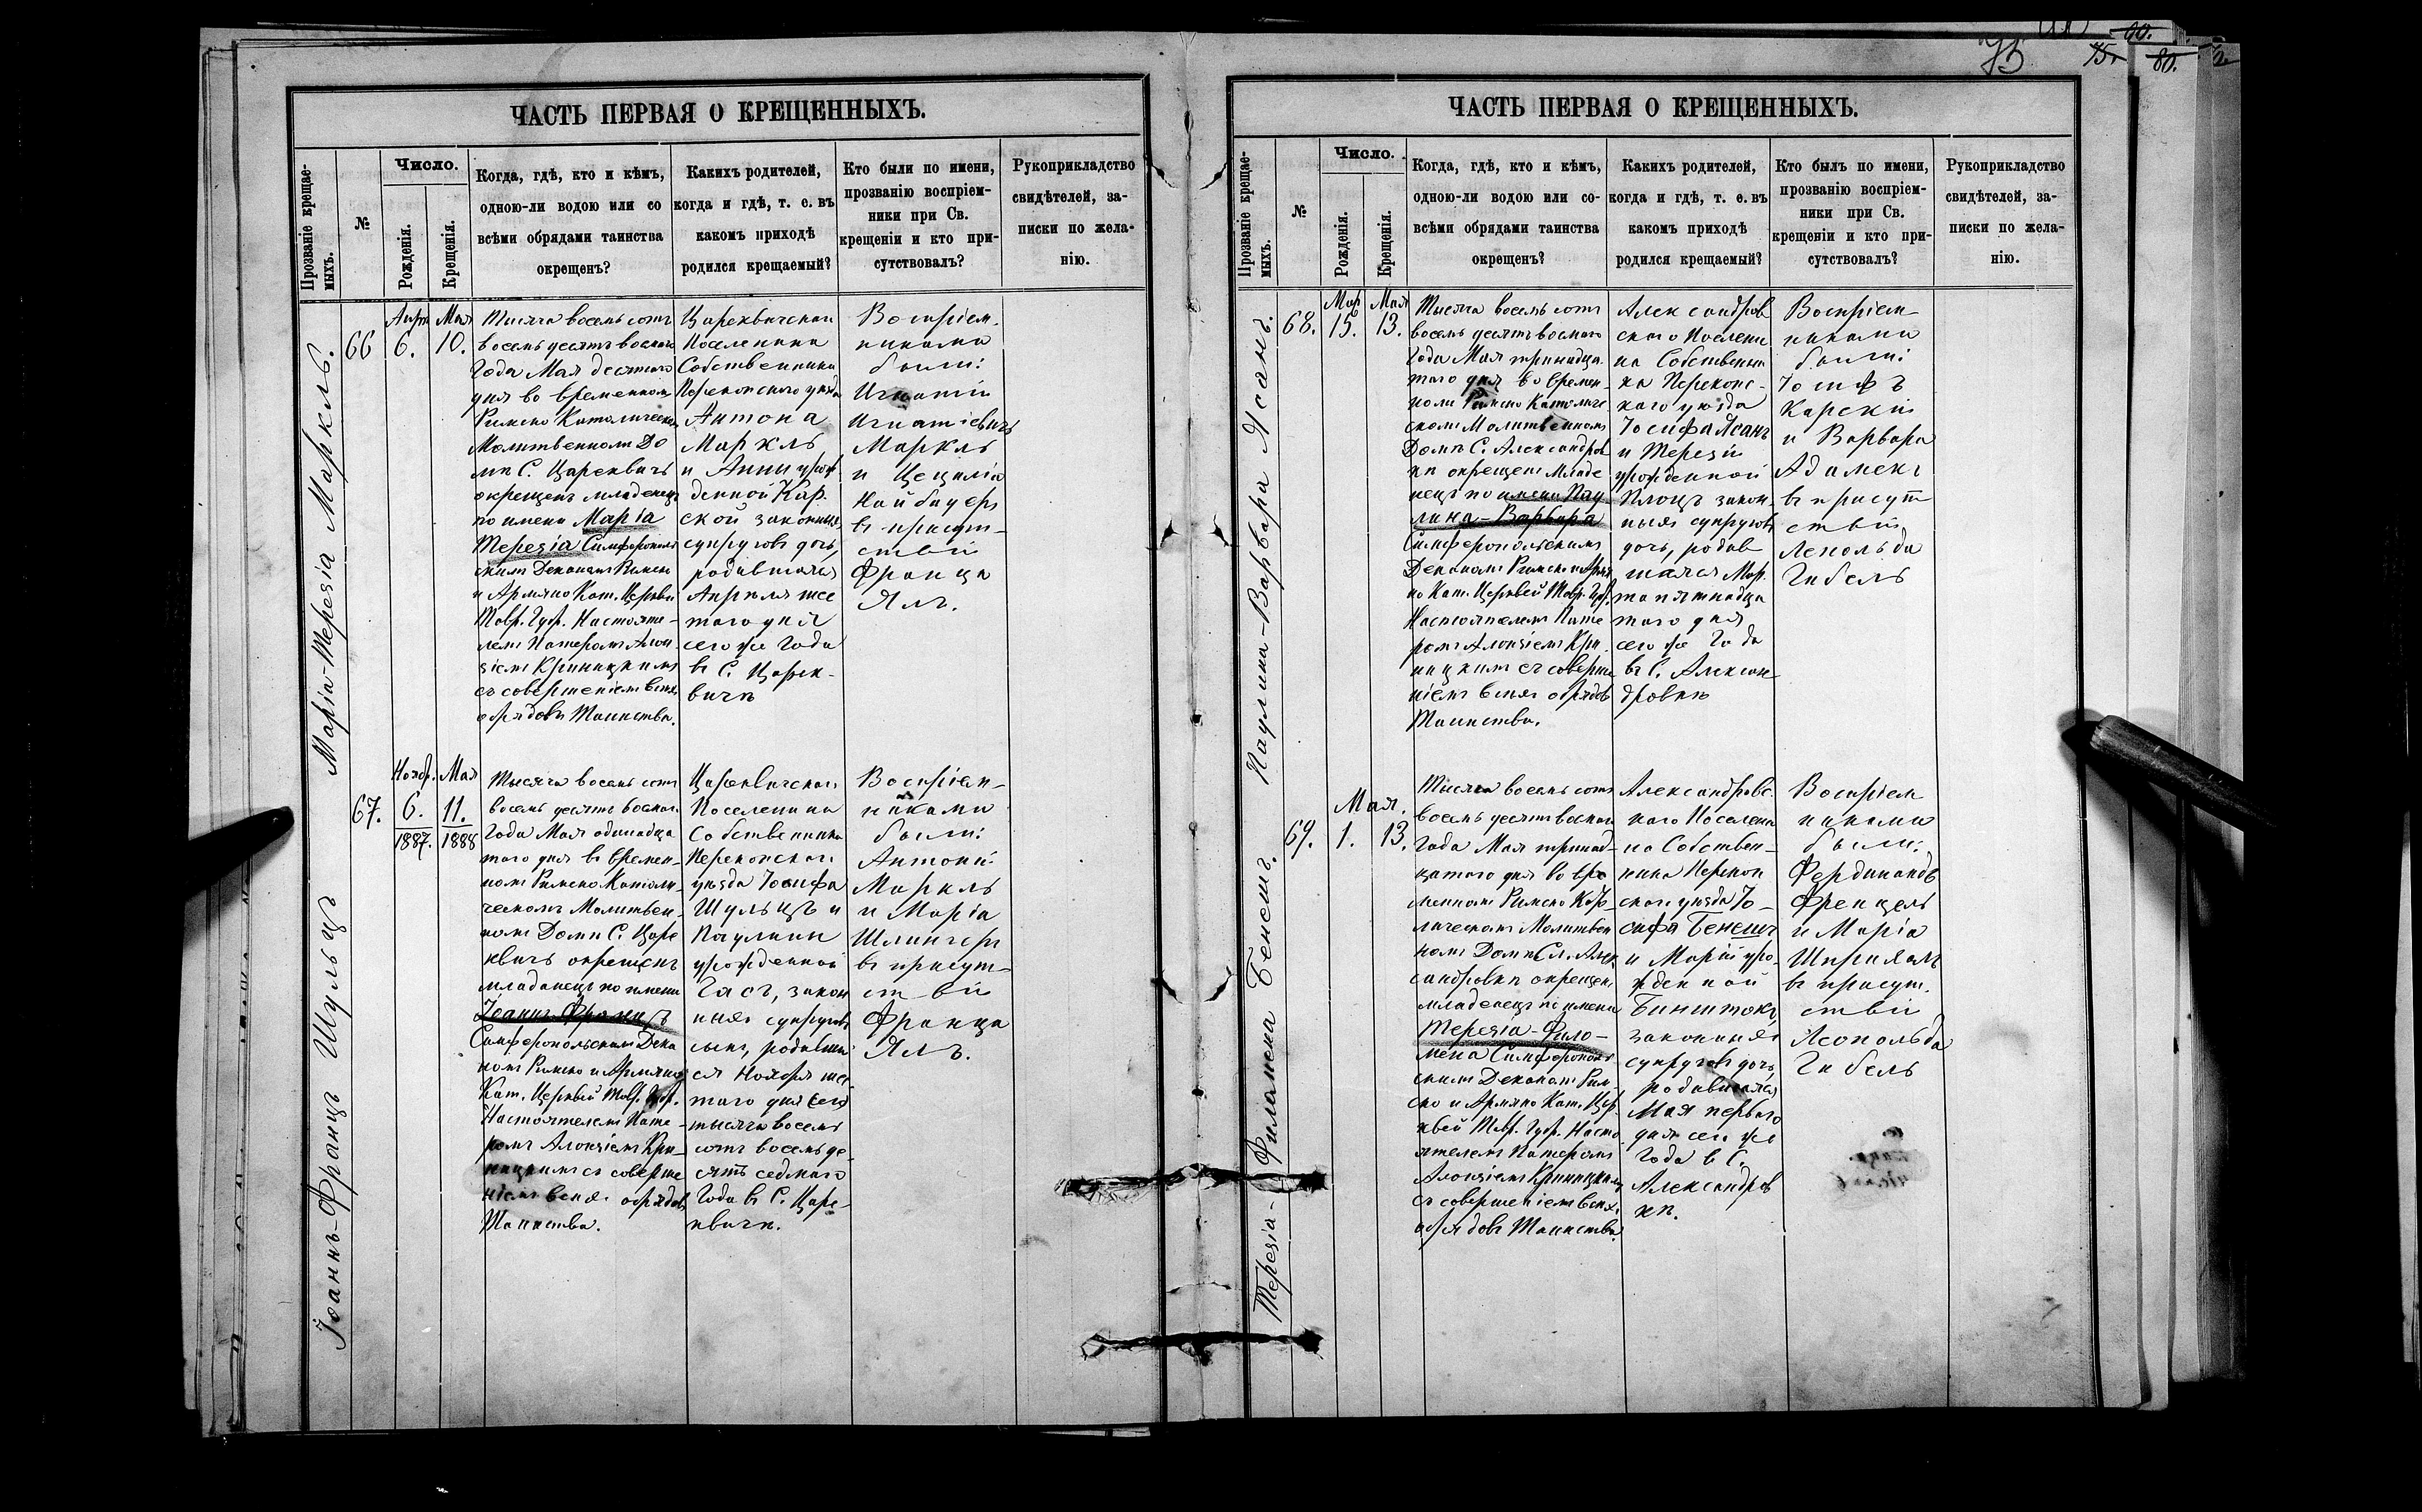 75
75.
80.
90.
ЧАСТЬ ПЕРВАЯ О КРЕЩЕННЫХЪ.
Прозваніе крещае-
мыхъ.
№
Число.
Рожденія.
Крещенія.
Когда, гдѣ, кто и кѣмъ,
одною-ли водою или со
всѣми обрядами таинства
окрещенъ?
Какихъ родителей,
когда и гдѣ, т. е. въ
какомъ приходѣ
родился крещаемый?
Кто были по имени,
прозванію воспріем-
ники при Св.
крещеніи и кто при-
сутствовалъ?
Рукоприкладство
свидѣтелей, за-
писки по жела-
нію.
Марія-Терезія Маркль.
66
Апр
6.
Мая
10.
Тысяча восемь сотъ
восемь десятъ восмаго
Года Мая десятаго
дня во временномъ
Римско Католическ
Молитвенномъ До
мѣ С. Царевквичъ
окрещенъ младенецъ
по имени Марія
Терезія Симферополь
скимъ Деканомъ Римско
и Армяно Кат. Церквей
Тавр. Губ. Настояте-
лемъ Патеромъ Алои
зіемъ Криницкимъ
съ совершеніемъ всѣхъ
обрядовъ Таинства.
Цареквичскаго
Поселенина
Собственника
Перекопского уѣзда
Антона
Маркль
и Анны урож
денной Кар.
ской законныхъ
супруговъ дочь,
родившаяся
Апрѣля шес
таго дня
сего же Года
въ С. Царек-
вичѣ
Воспріем-
никами
были:
Игнатій
Игнатіевичъ
Маркль
и Цецилія
Найбауеръ
въ присут-
ствіи
Франца
Ялъ.
Іоаннъ-Францъ Шульцъ
67.
Нояб.
6.
1887.
Мая
11.
1888
Тысяча восемь сотъ
восемь десятъ восмаго
Года Мая одинадца
таго дня въ времен-
номъ Римско Католи-
ческомъ Молитвен-
номъ Домѣ С. Царе
квичъ окрещенъ
младенецъ по имени
Іоаннъ-Францъ
Симферопольскимъ Дека
номъ Римско и Армяно
Кат. Церквей Тавр. Губ.
Настоятелемъ Пате-
ромъ Алоизіемъ Кри-
ницкимъ съ соверше
ніемъ всѣхъ обрядовъ
Таинства.
Царевичскаго
Поселенина
Собственника
Перекопскаго
уѣзда Іосифа
Шульцъ и
Паулины
урожденной
Гасъ, закон
ныхъ супруговъ
сынъ, родивший
ся Ноября шес-
таго дня сего
тысяча восемь
сотъ восемьде-
сятъ седмаго
Года въ С. Царе-
квичѣ.
Воспріем-
никами
были:
Антоній
Маркль
и Марія
Шлингеръ
въ присут-
ствіи
Франца
Ялъ.
ЧАСТЬ ПЕРВАЯ О КРЕЩЕННЫХЪ.
Прозваніе крещае-
мыхъ.
№
Число.
Рожденія.
Крещенія.
Когда, гдѣ, кто и кѣмъ,
одною-ли водою или со-
всѣми обрядами таинства
окрещенъ?
Какихъ родителей,
когда и гдѣ, т. е. въ
какомъ приходѣ
родился крещаемый?
Кто былъ по имени,
прозванію воспріем-
ники при Св.
крещеніи и кто при-
сутствовалъ?
Рукоприкладство
свидѣтелей, за-
писки по жела-
нію.
Паулина-Варвара Ясанъ.
68.
Мар
15.
Мая
13.
Тысяча восемь сотъ
восемь десятъ восмаго
Года Мая тринадца
таго дня во времен-
номъ Римско Католиче
скомъ Молитвенномъ
Домѣ С. Александров
кѣ окрещенъ Младе
нецъ по имени Пау-
лина-Варвара
Симферопольскимъ
Деканомъ Римско и Армя
но Кат. Церквей Тавр. Губ.
Настоятелемъ Пате
ромъ Алоизіемъ Кри.
ницкимъ съ соверше
ніемъ всѣхъ обрядовъ
Таинства.
Александров
скаго Поселени
на Собственни
ка Перекопс-
каго уѣзда
Іосифа Ясанъ
и Терезіи
урожденной
Плоцъ закон-
ныхъ супруговъ
дочь, родив
шаяся Мар.
та пятнадца
таго дня
сего же Года
въ С. Алексан-
дровкѣ
Воспріем-
никами
были:
Іосифъ
Карскій
и Варвара
Адамекъ
въ присут
ствіи
Леопольда
Гибель
Терезія-Филомена Бенешъ.
69.
Мая.
1.
13.
Тысяча восемь сотъ
восемь десятъ восмаго
Года Мая тринад-
цатаго дня во вре
менномъ Римско Като-
лическомъ Молитвен
номъ Домѣ С. Алек
сандровкѣ окрещенъ
младенецъ по имени
Терезія-Фило-
мена Симферополь
скимъ Деканомъ Рим-
ско и Армяно Кат. Цер
квей Тавр. Губ. Насто
ятелемъ Патеромъ
Алоизіемъ Криницкимъ
съ совершеніемъ всѣхъ
обрядовъ Таинства.
Александровс.
каго Поселени
на Собствен-
ника Перекоп
скаго уѣзда Іо-
сифа Бенешъ
и Маріи уро-
жденной
Бинштокъ
законныхъ
супруговъ дочь,
родившаяся
Мая перваго
дня сего же
Года въ С.
Александров
кѣ.
Воспріем
никами
были:
Фердинандъ
Френцель
и Марія
въ присут.
ствіи
Леопольда
Гибель